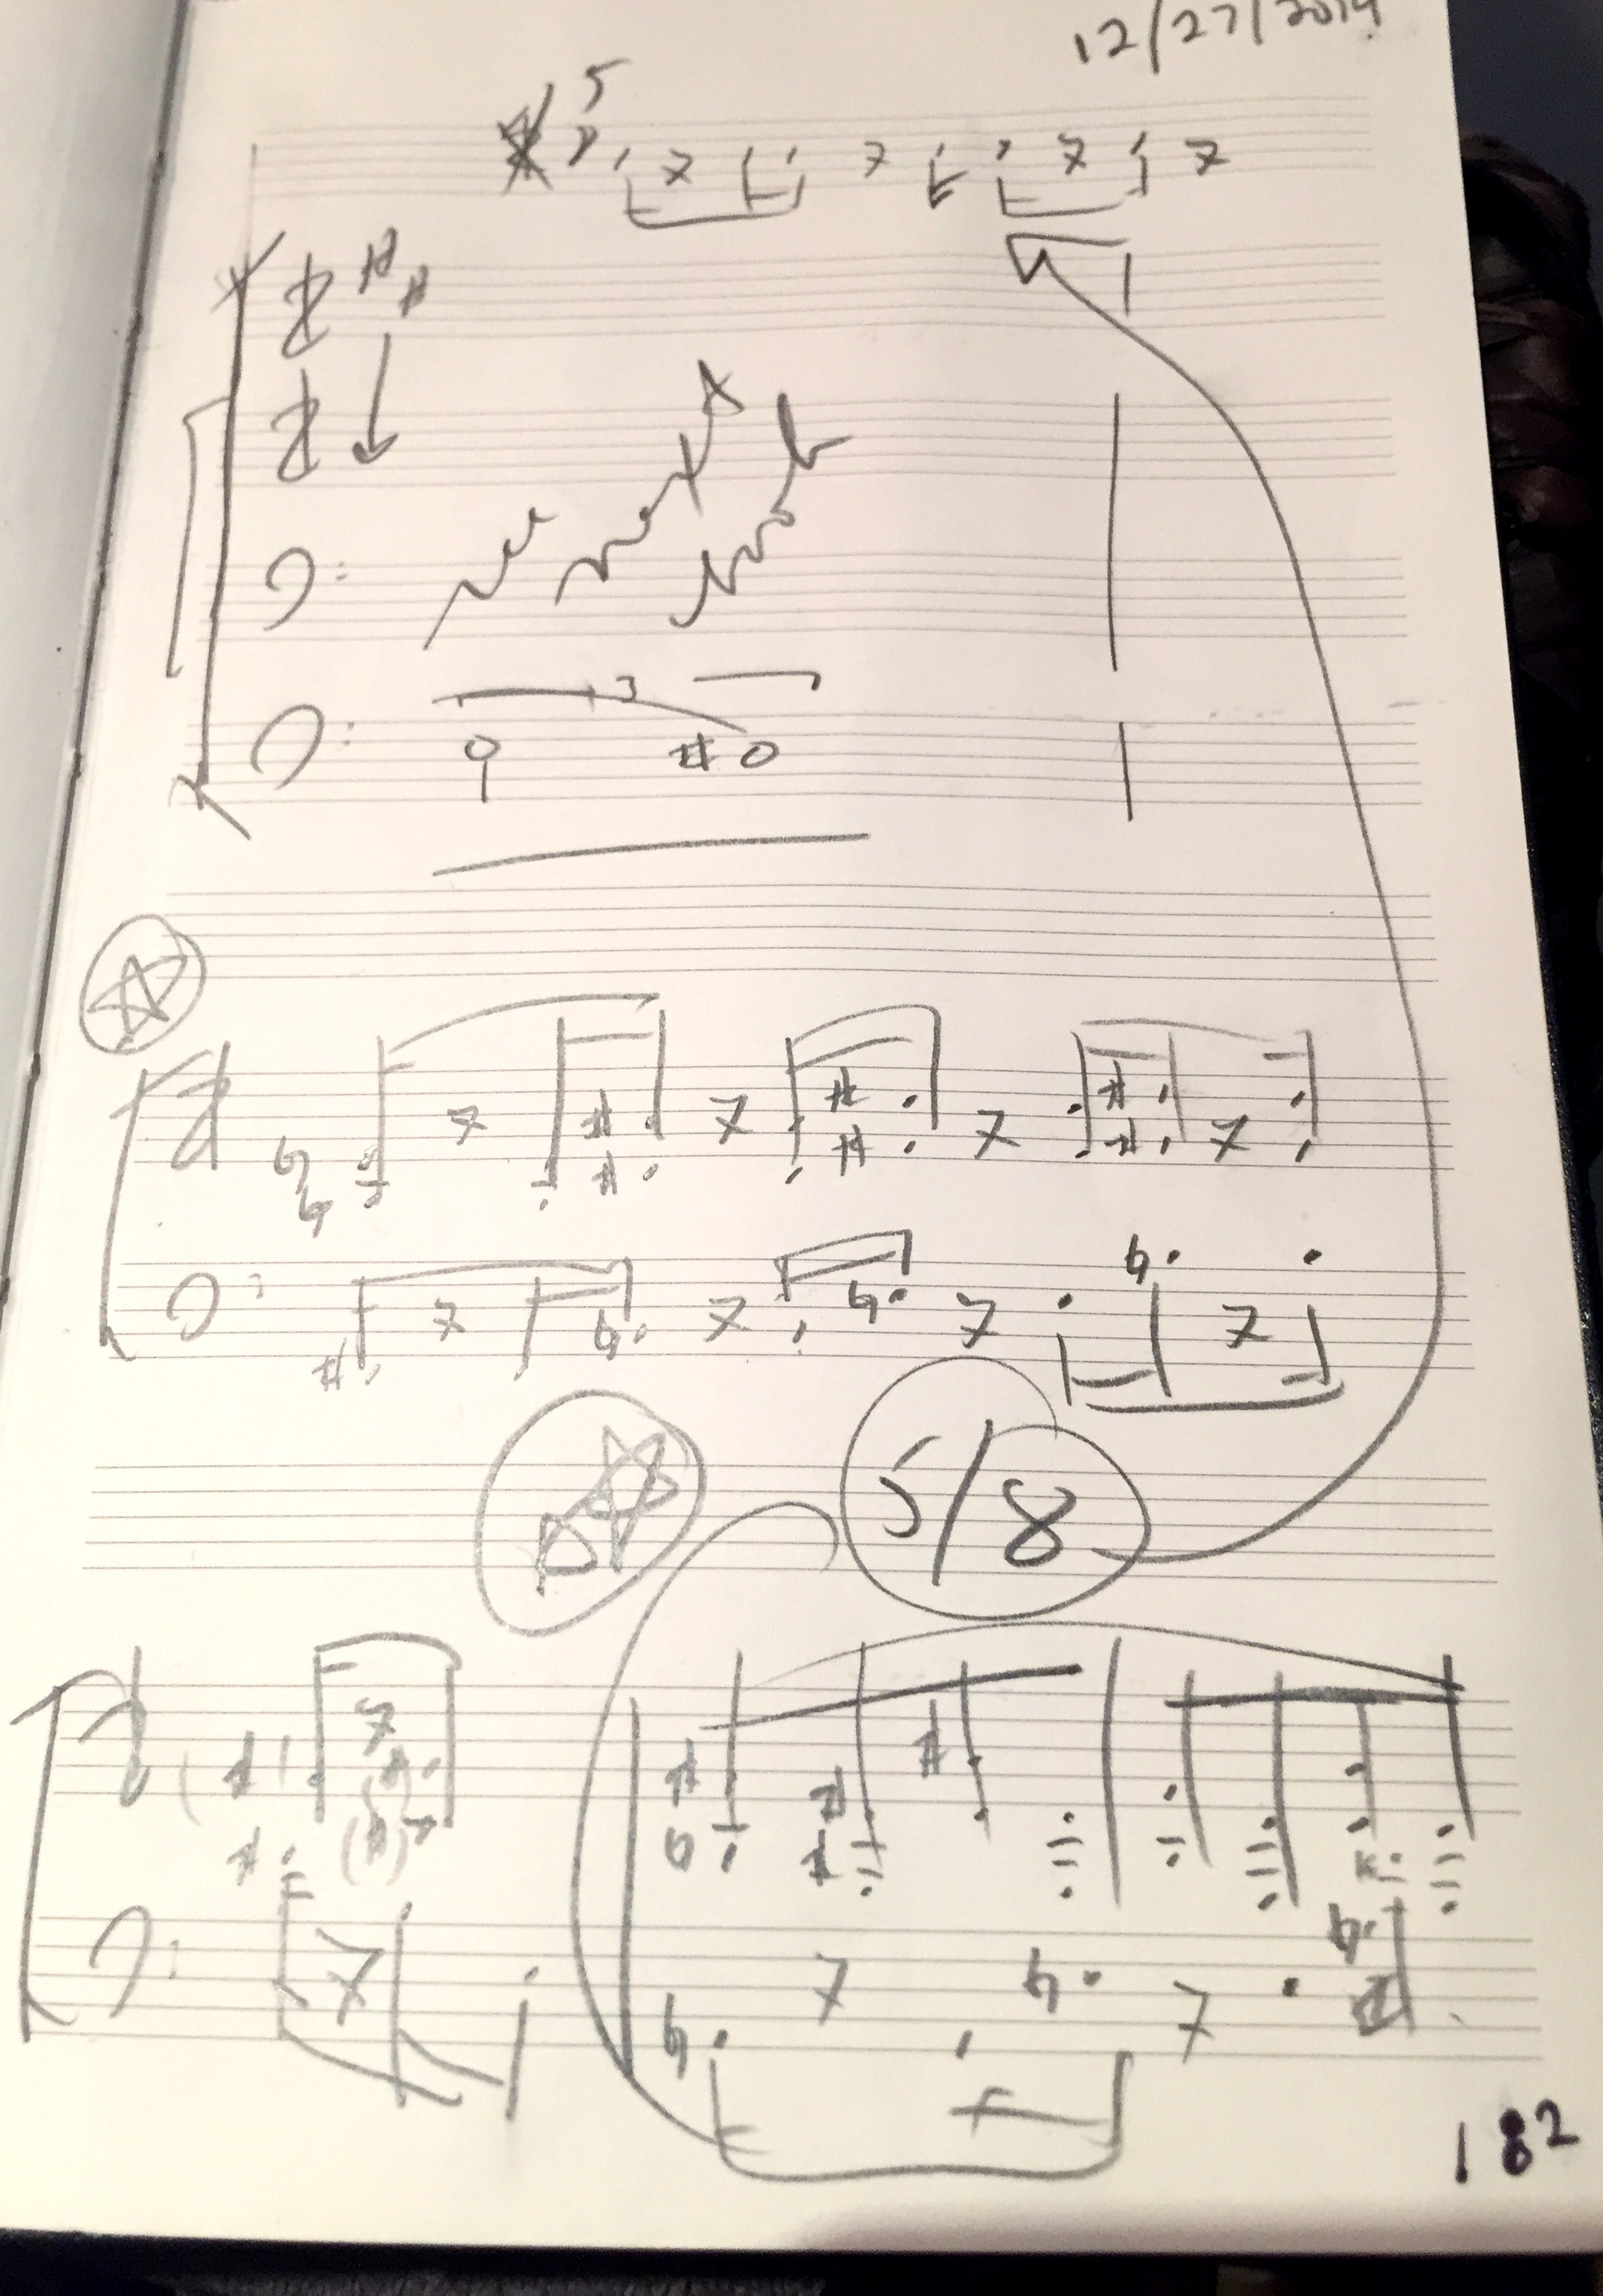 12/27/2014
5
3
5/8
182